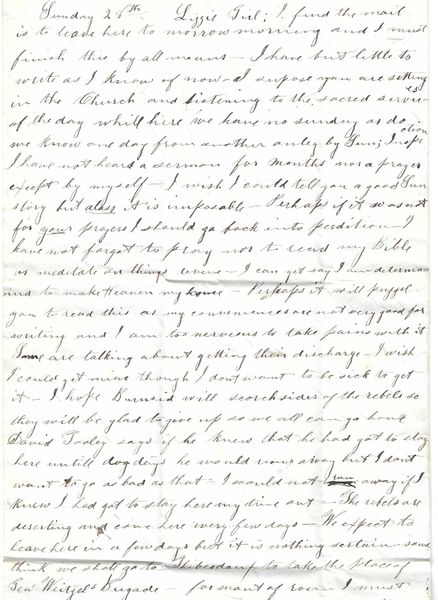 Sunday 26th Lizzie Girl; I find the mail
is to leave here to morrow morning and I must
finish this by all means - I have but little to
write as I know of now - I supose you are seting
in the Church and listening to the sacred servic es
of the day whill here we have no sunday as do
we know one day from another only by Sun; Inspe ction
I have not heard a sermon for months nor a prayer
except by myself - I wish I could tell you a good Sun
story but alass it is imposable - Perhaps if it was not
for your prayers I should go back into perdition - I
have not forgot to pray nor to read my Bible
or meditate on things devine - I can yet say I am determa
ined to make Heaven my home - Perhaps it will puzzel
you to read this as my conveniences are not very good for
writing and I am too nerveous to take pains with it
Some are talking about getting their discharge - I wish
I could get mine though I dont want to be sick to get
it - I hope Burnsid will scorch sides of the rebels so
they will be glad to give up so we all can go home
David Tooley says if he knew that he had got to stay
here untill dog days he would run away but I dont
want to go as bad as that - I would not run away if I
knew I had got to stay here my time out - The rebels are
deserting and come here every few days - We expect to
leave here in a few days but it is nothing sertain - some
think we shall go to Thibeodaux to take the place of
Gen Weitzels Brigade - for want of room I must